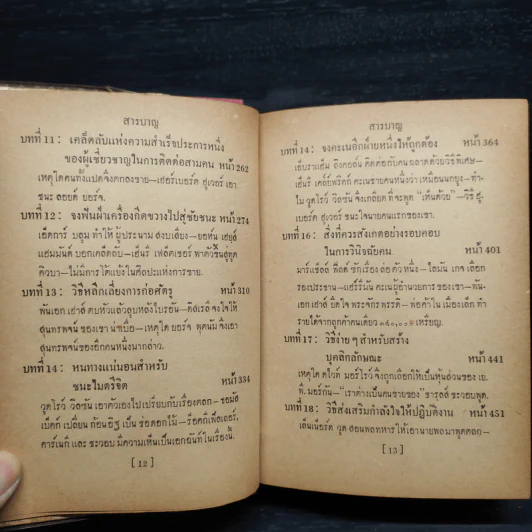 สารบาญ
บทที่ 11 : เคล็ดลับแห่งความสำเร็จประการหนึ่ง
ของผู้เชี่ยวชาญในการติดต่อสามคน หน้า 262
เหตุใดคนทั้งแปดจึงตกลงขาย—เฮอร์เบอร์ต ฮูเวอร์ เอา
ชนะ ลอยด์ ยอร์จ.
บทที่ 12 : จงฟันฝ่าเครื่องกีดขวางไปสู่ชัยชนะ หน้า 274
เอ็ดการ์ บลุม ทำให้ ผู้ประนาม สงบเสียง—
แฮมมันด์ บอกเคล็ดลับ—เฮ็นรี เฟล็ตเชอร์
คิวบา—ไม่มีการ โต้แย้งในศิลปะแห่งการขาย.
บทที่ 13 : วิธีหลีกเลี่ยงการก่อศัตรู หน้า 310
พันเอก เฮาส์ ตบหัวแล้วลูบหลังไบรอัน—ดิสเรลิ จึงใช้ให้
สุนทรพจน์ ของเขา น่าเบื่อ—เหตุใด ยอร์จ จึงเอา
สุนทรพจน์ของอีกคนหนึ่งมากล่าว.
บทที่ 14 : หนทางแน่นอนสำหรับ
ชนะไมตรีจิต หน้า 334
วูดโรว์ วิลซัน เอาตัวเองไปเปรียบกับเรื่องตลก—
เป็ค เปลี่ยน ก้อนอิฐ เป็น ช่อดอกไม้—ร็อคกี้เฟ็ลเลอร์,
คาร์เนกี และ ชะวอบ มีความเห็นเป็นเอกฉันท์ในเรื่องนี้.
[ 12 ]
สารบาญ
บทที่ 14 : จงคะเนอีกฝ่ายหนึ่งให้ถูกต้อง หน้า 364
เอ็บราแฮ็ม ลิงคอล์น ติดต่อกับคนฉลาดด้วยวิธีพิเศษ—
เฮ็นรี คะเนชายคนหนึ่งว่า —ทำ
ไม วูดโรว์ วิลซัน จึงเกลียด ที่จะพูด "เห็นด้วย"—วิธี ฮู-
เบอร์ต ฮูเวอร์ ชนะใจนายคนแรกของเขา.
บทที่ 16 : สิ่งที่ควรสังเกตอย่างรอบคอบ
ในการวินิจฉัยคน หน้า 401
มาร์แช็ลล์ ฟิลด์ ซักเรื่อง ลอตัวหนึ่ง— เลือก
รองประธาน—แฮร์ริมัน คะเนผู้อำนวยการ ของเขา—พัน-
เอก เฮาส์ ยึดใจ พระจักรพรรดิ—พ่อค้าใน เมืองเล็ก ทำ
รายได้จากลูกค้าคนเดียว เหรียญ.
บทที่ 17 : วิธีง่าย ๆ สำหรับสร้าง
บุคลิกลักษณะ หน้า 441
เหตุใด ดไวท์ มอร์โรว์ จึงถูกเลือกให้เป็นหุ้นส่วนของ เย.
พี. มอร์กัน—"เราต่างเป็นคนขายของ" ชารลส์ ชะวอบพูด.
บทที่ 18 : วิธีส่งเสริมกำลังใจให้ปฏิบัติงาน หน้า 451
เล็นเนิอร์ด วูด สอนพลทหารให้เอานายพลมาพูดตลก—
[ 13 ]